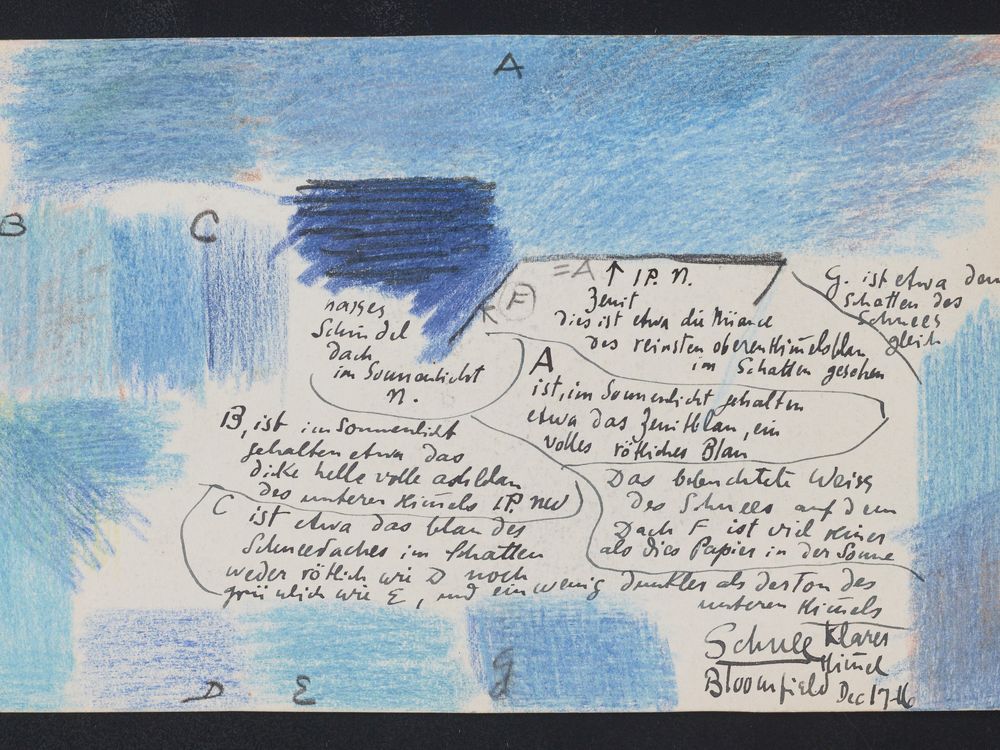 A
B
C
=A ↑ I.P. N.
Zenit
Dies ist etwa die Nüance
des reinsten oberen Himelsblau
im Schatten gesehen
G. ist etwa dem
Schatten des
Schnees
gleich
F
nasses
Schindel
dach
im Sonnenlicht
N.
A
ist, im Sonnenlicht gehalten
etwa das Zenitblau, ein
volles rötliches Blau
B, ist im Sonnenlicht
gehalten etwa das
dicke helle volle
des unteren Himels I.P. NW
Das beleuchtete Weiss
des Schnees auf dem
Dach F ist viel reiner
als dies Papier in der Sonne
C ist etwa das blau des
Schneedaches im Schatten
weder rötlich wie D noch
grünlich wie E, und ein wenig dunkler als der Ton des
unteren Himels
Schnee Klarer
Himel
Bloomfield Dec 17-16
D
E
g